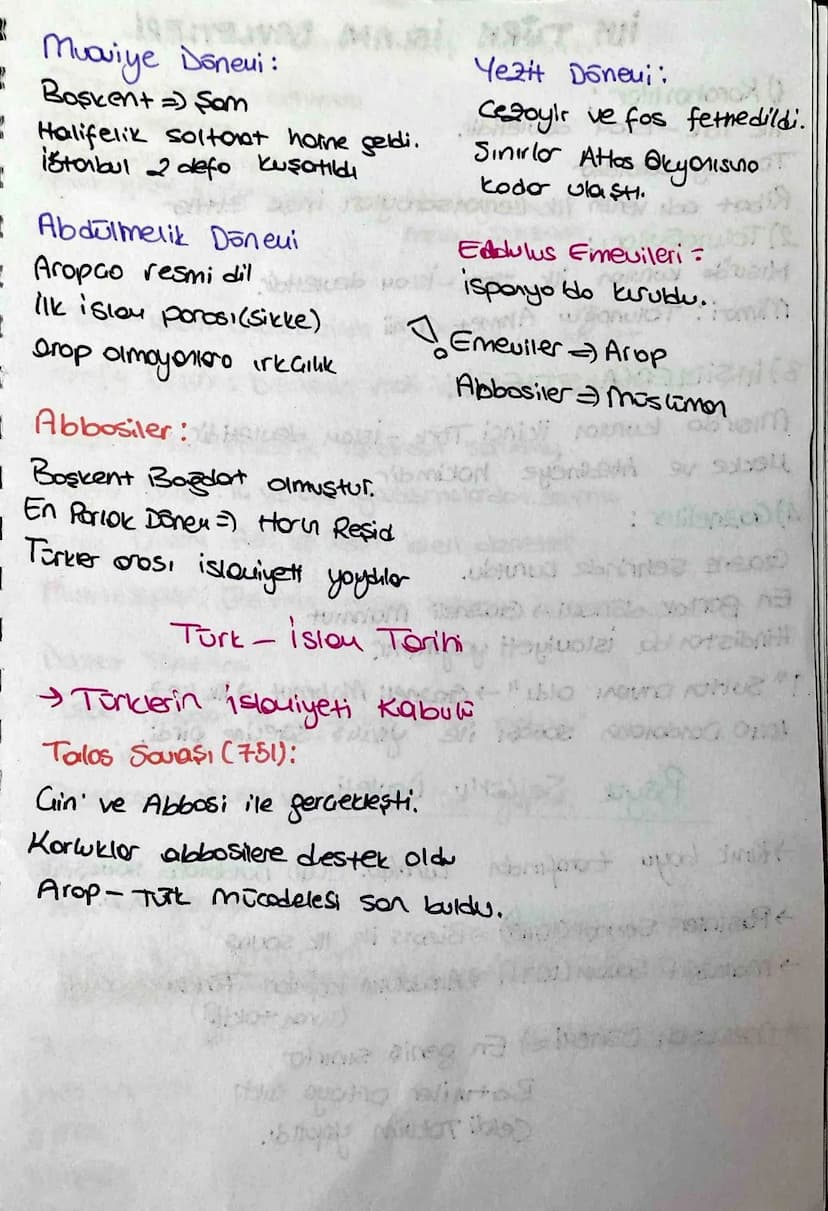 Muaviye Dönemi:
Başkent => Şam
Halifelik saltanat haline geldi.
İstanbul 2 defa kuşatıldı
Yezit Dönemi:
Cezayir ve fas fethedildi.
Sınırlar Atlas Okyanusuna
kadar ulaştı.
Abdülmelik Dönemi
Arapça resmi dil
İlk islam parası (sikke)
arap olmayanlara ırkçılık
Endülüs Emevileri =
İspanya'da kuruldu.
! Emeviler => Arap
Abbasiler => Müslüman
Abbasiler:
Başkent Bağdat olmuştur.
En Parlak Dönem => Harun Reşid
Türkler arası islamiyeti yaydılar
Türk - İslam Tarihi
→ Türklerin islamiyeti Kabulü
Talas Savaşı (751):
Çin ve Abbasi ile gerçekleşti.
Karluklar abbasilere destek oldu
Arap - Türk mücadelesi son buldu.